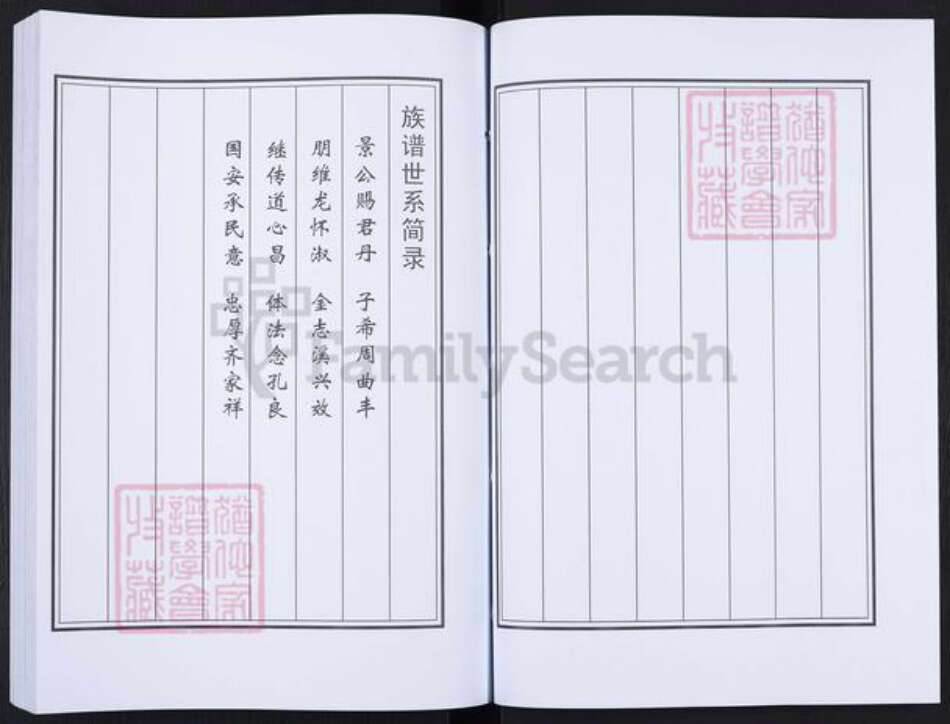 族谱世系简录
景公赐君丹 子希周曲丰
朋维龙怀淑 金志溪兴效
继传道心昌 体法念孔良
国安承民意 忠厚齐家祥
FamilySearch
猶他家
譜學會
收藏
猶他家
譜學會
收藏